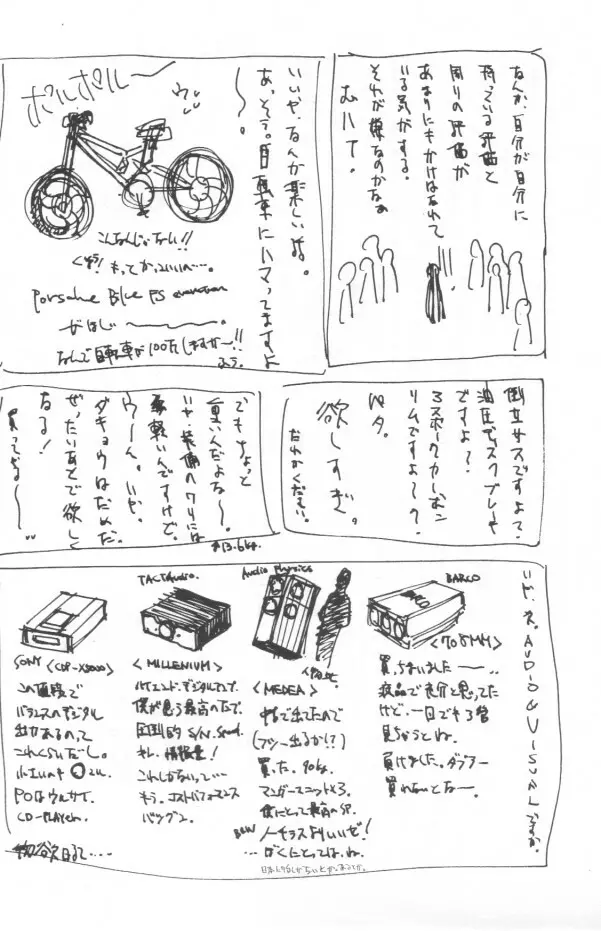 なんか、自分が自分に
持っている評価と
周りの評価が
あまりにもかけはなれて
いる気がする。
それが嫌なのかなぁ
むハて。
!!
いいや、なんか楽しいよ。
あ、そう。自転車にハマってますよ
〜。
ポルポルー〜
こんなんじゃない!!
くそう!もってかっこいいへ…。
Porsche Blue FS evolution
がほしー〜。
なんで自転車が100万しますか〜!!
ふう。
倒立サスですよ?
油圧ディスクブレーキ
ですよ?
3スポークカーボン
リムですよ〜?
ペタ。
欲しすぎ。
だれかください。
でもちょっと
重いんだよな〜。
いや、装備のワリには
軽いんですけど。
ウーん。いや。
ダキョウはだめだ。
ぜったいあとで欲しく
なる!
買ってやる〜〜
※13.6kg.
いや、ネ。AUDIO&VISUALですか。
SONY <CDP-X5000>
この値段で
バランスのデジタル
出力あるのって
これくらいだし。
POはウルサイ.
CD-PLAYer.
TACTAudio.
<MILLENIUM>
ハイエンド・デジタルアンプ.
僕が思う最高のアンプで.
圧倒的 S/N. Speed.
キレ、情報量!
これしかないって…
もう.コストパフォーマンス
バツグン.
Audio Physics
<MEDEA>
中古で出てたので
(フツー出るか!?)
買った。90kg.
マンガースユニット×3.
僕にとって最高のSP.
B&W ノーチラスよりいいぜ!
…ぼくにとってはね.
BARCO
<708MM>
買っちまいました〜—..
液晶で充分と思ってた
けど、一回でも3管
見ちゃうとね.
負けました。ダブラー
買わないとな〜.
物欲日記で....